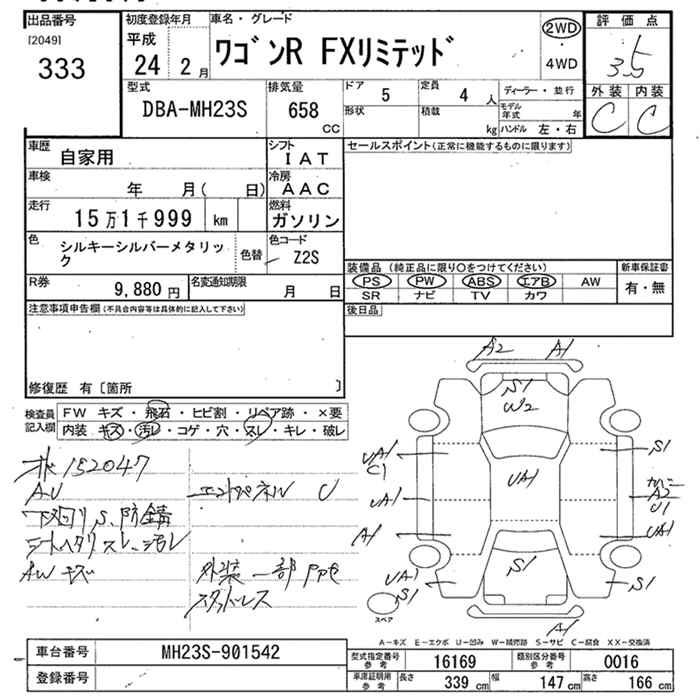 出品番号
[2049]
333
初度登録年月
平成
24 2月
車名・グレード
ワゴンR FXリミテッド
2WD
・
4WD
評価点
3.5
外装 内装
C C
型式
DBA-MH23S
排気量
658
CC
ドア 5
定員 4 人
形状
積載 kg
ディーラー・並行
モデル年式 年
ハンドル 左・右
車歴
自家用
シフト
IAT
車検
年 月( 日)
冷房
AAC
走行
15万1千999 km
燃料
ガソリン
色
シルキーシルバーメタリック
色替
色コード
Z2S
R券
9,880 円
名変通知期限
月 日
セールスポイント(正常に機能するものに限ります)
装備品 (純正品に限り○をつけてください)
PS PW ABS エアB AW
SR ナビ TV カワ
新車保証書
有・無
後日品
注意事項申告欄(不具合内容等は具体的に記入して下さい)
修復歴 有〔箇所 〕
検査員記入欄
FW キズ・飛石・ヒビ割・リペア跡・×要
内装 キズ・汚レ・コゲ・穴・スレ・キレ・破レ
152047
AU
エンドパネル U
下回りS、防錆
シートヘタリ スレ、汚レ
AW キズ
外装 一部
スタッドレス
A2 A1
S1
W2
UA1
C1
S1
UA1
UA1
カナニ
A2
U1
A1
UA1
UA1
S1
S1
S1
スペア
A1
A-キズ E-エクボ U-凹み W-補修跡 S-サビ C-腐食 XX-交換済
車台番号
MH23S-901542
登録番号
型式指定番号
参考
16169
類別区分番号
参考
0016
車庫証明用
参考
長さ 339 cm
幅 147 cm
高さ 166 cm